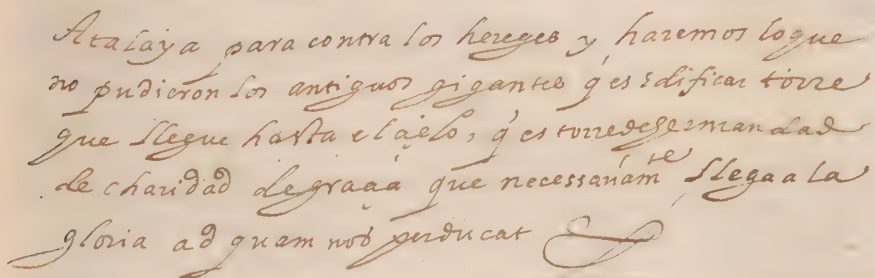 Atalaya para contra los hereges y haremos lo que
no pudieron los antiguos gigantes q̃ es edificar torre
que llegue hasta el çielo, q̃ es torre de germandad
de charidad de graçia que necessariamte llega a la
gloria ad quam nos perducat